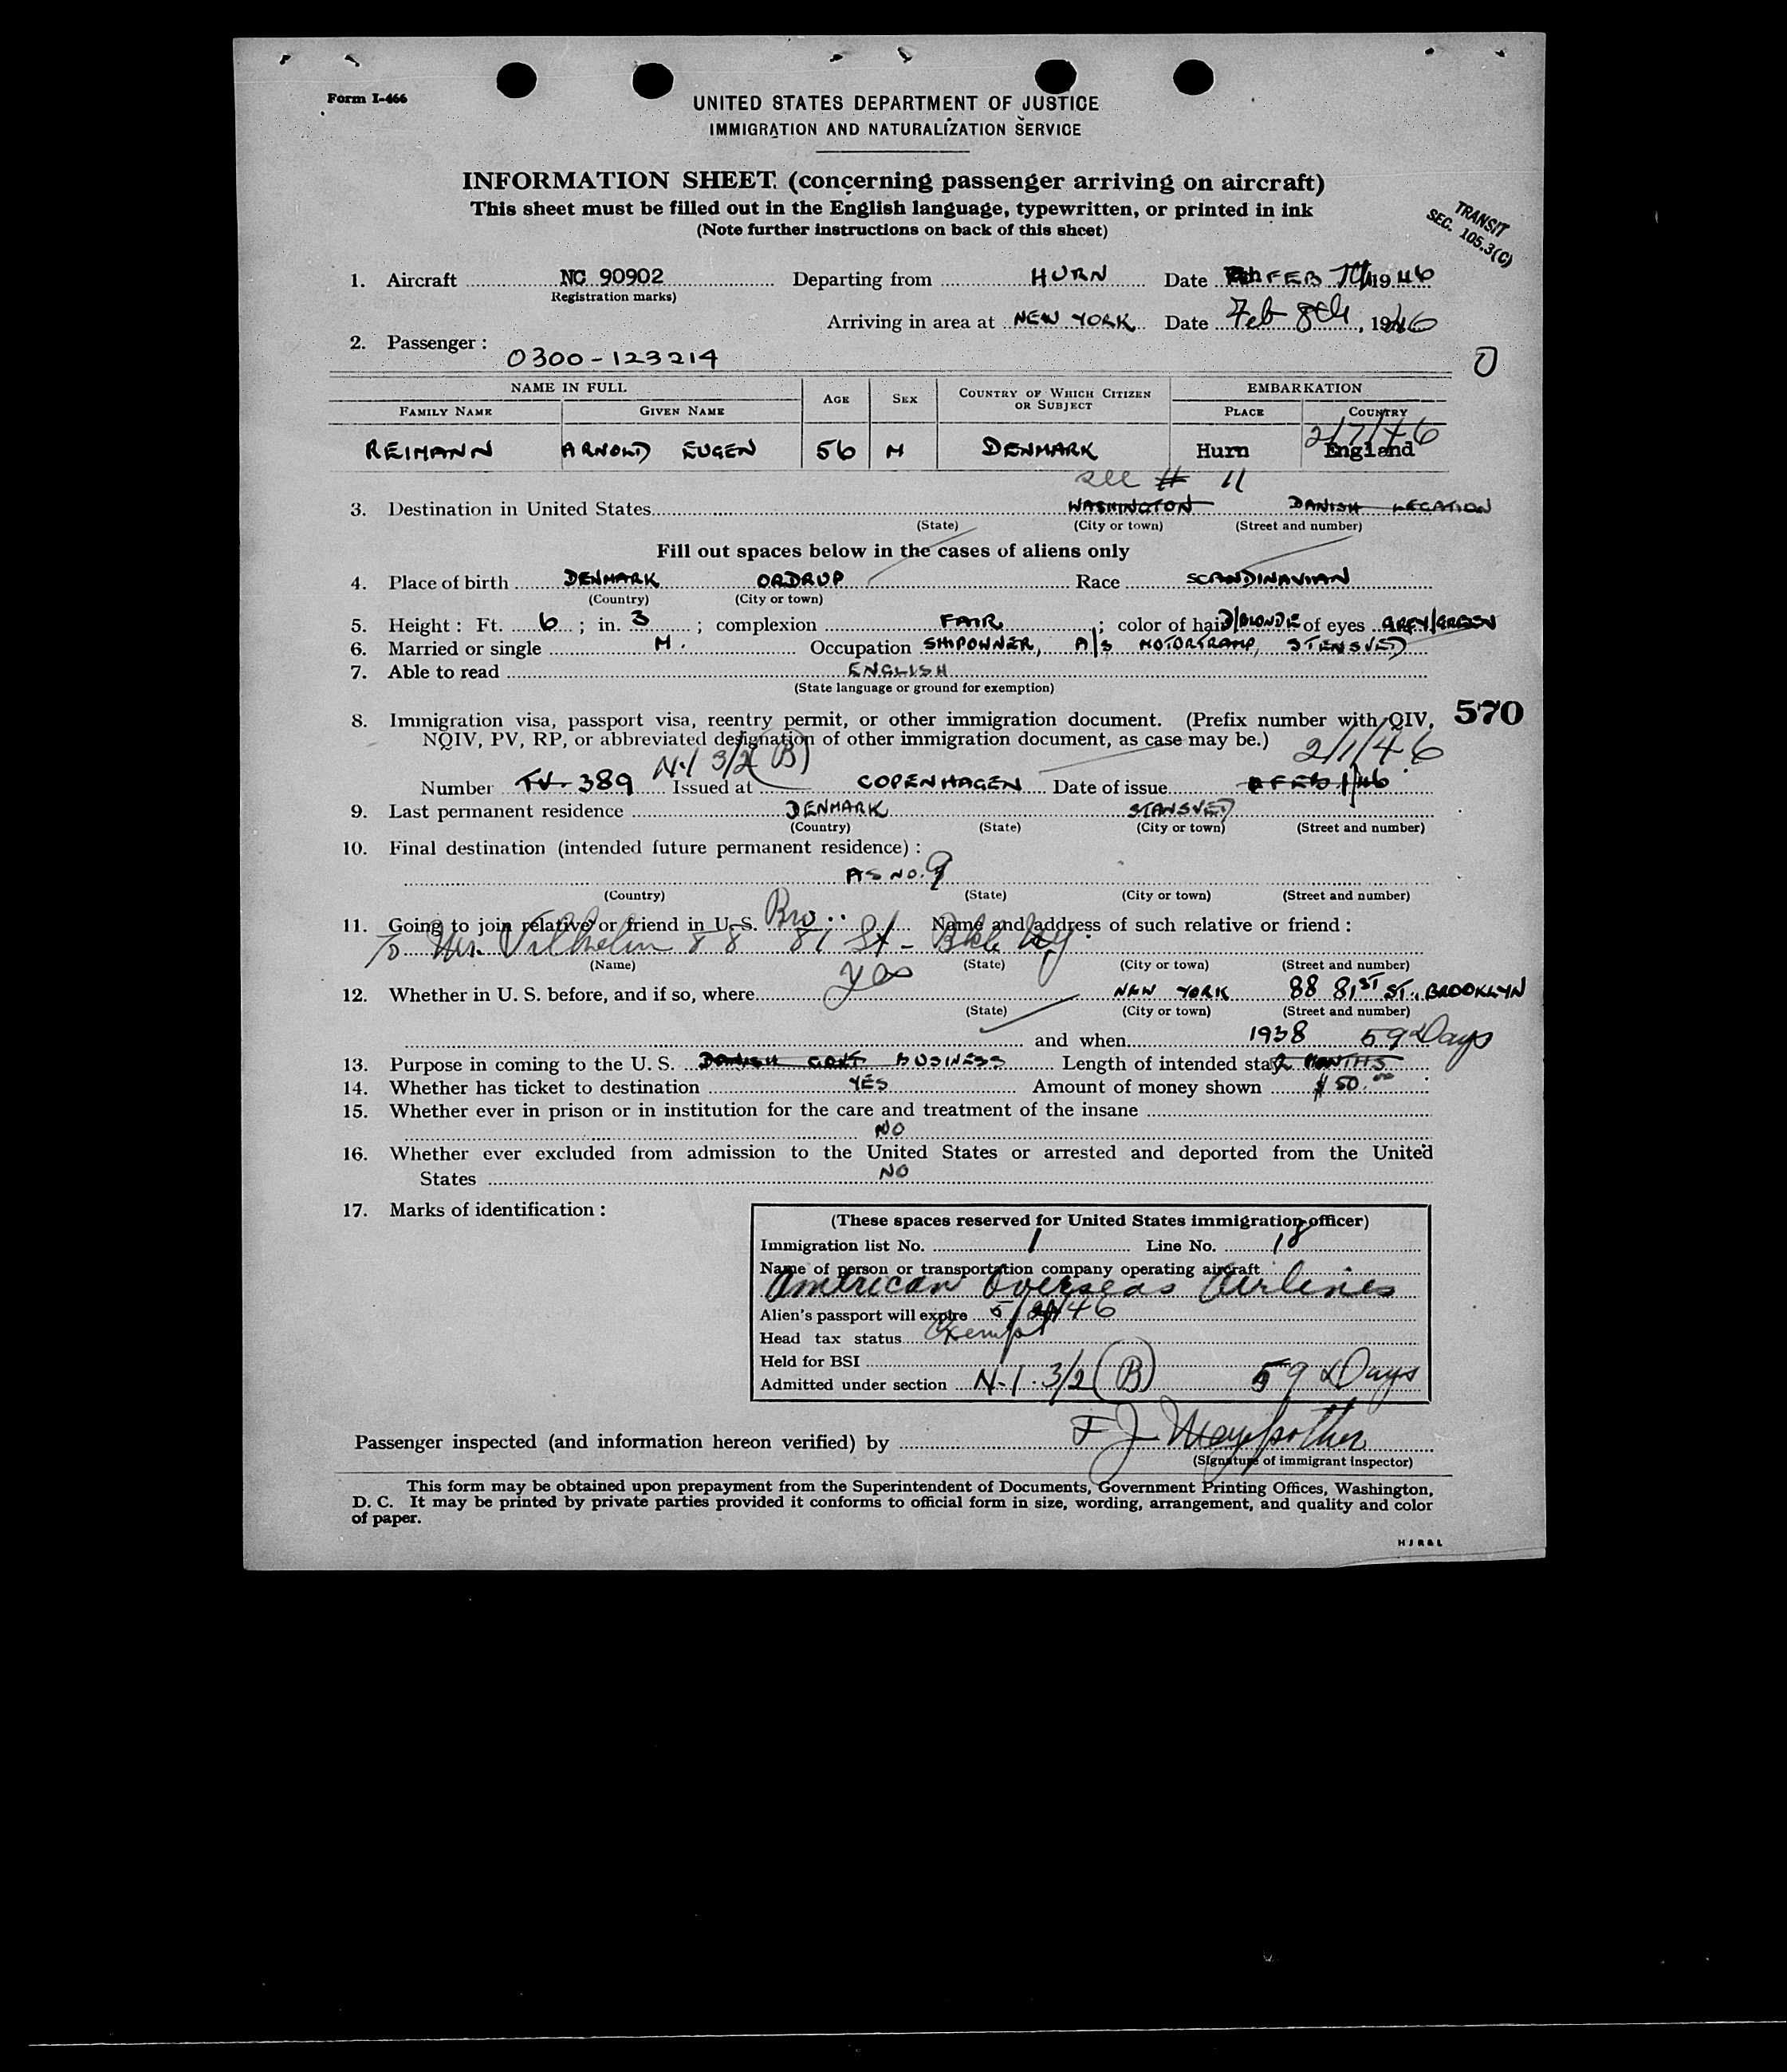 Form I-466
UNITED STATES DEPARTMENT OF JUSTICE
IMMIGRATION AND NATURALIZATION SERVICE
INFORMATION SHEET (concerning passenger arriving on aircraft)
This sheet must be filled out in the English language, typewritten, or printed in ink
(Note further instructions on back of this sheet)
TRANSIT
SEC. 105.3(C)
1. Aircraft NC 90902 Departing from HURN Date FEB 7th 1946
(Registration marks)
Arriving in area at NEW YORK Date Feb 8th, 1946
2. Passenger:
0300-123214
0
NAME IN FULL AGE SEX COUNTRY OF WHICH CITIZEN OR SUBJECT EMBARKATION
FAMILY NAME GIVEN NAME PLACE COUNTRY
2/7/46
REIMANN ARNOLD EUGEN 56 M DENMARK Hurn England
see # 11
3. Destination in United States WASHINGTON DANISH LEGATION
(State) (City or town) (Street and number)
Fill out spaces below in the cases of aliens only
4. Place of birth DENMARK ORDRUP Race SCANDINAVIAN
(Country) (City or town)
5. Height: Ft. 6; in. 3; complexion FAIR; color of hair D/BLONDE of eyes GREY/GREEN
6. Married or single M. Occupation SHIPOWNER, A/S MOTORTRAMP, STENSVED
7. Able to read ENGLISH
(State language or ground for exemption)
8. Immigration visa, passport visa, reentry permit, or other immigration document. (Prefix number with QIV, 570
NQIV, PV, RP, or abbreviated designation of other immigration document, as case may be.)
N-1 3/2 (B) 2/1/46
Number TV-389 Issued at COPENHAGEN Date of issue FEB 1/46
9. Last permanent residence DENMARK STANSVED
(Country) (State) (City or town) (Street and number)
10. Final destination (intended future permanent residence):
AS NO. 9
(Country) (State) (City or town) (Street and number)
11. Going to join relative or friend in U. S. Bro.. Name and address of such relative or friend:
To Vilhelm 88 81 St - Bkl NY
(Name) (State) (City or town) (Street and number)
12. Whether in U. S. before, and if so, where yes NEW YORK 88 81ST ST., BROOKLYN
(State) (City or town) (Street and number)
and when 1938 59 Days
13. Purpose in coming to the U. S. DANISH GOVT BUSINESS Length of intended stay 2 MONTHS
14. Whether has ticket to destination YES Amount of money shown $50.00
15. Whether ever in prison or in institution for the care and treatment of the insane
NO
16. Whether ever excluded from admission to the United States or arrested and deported from the United
States NO
17. Marks of identification:
(These spaces reserved for United States immigration officer)
Immigration list No. 1 Line No. 18
Name of person or transportation company operating aircraft
American Overseas Airlines
Alien's passport will expire 5/ /46
Head tax status Exempt
Held for BSI
Admitted under section N-1. 3/2 (B) 59 Days
Passenger inspected (and information hereon verified) by F J
(Signature of immigrant inspector)
This form may be obtained upon prepayment from the Superintendent of Documents, Government Printing Offices, Washington,
D. C. It may be printed by private parties provided it conforms to official form in size, wording, arrangement, and quality and color
of paper.
H J R & L